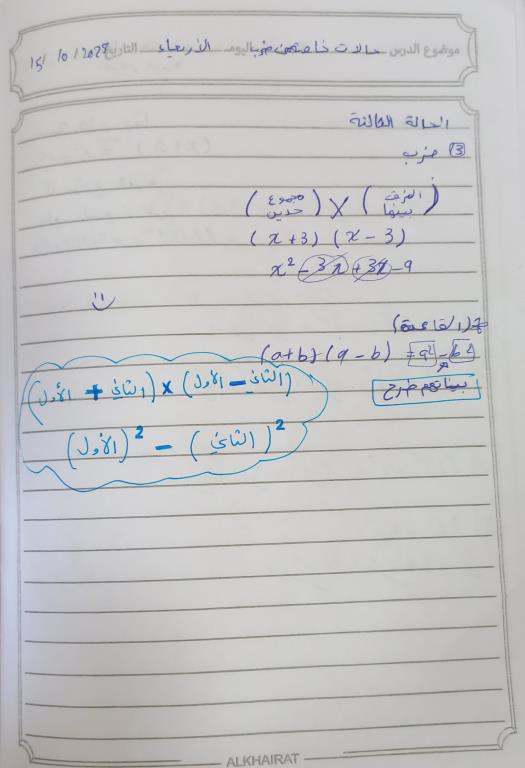 موضوع الدرس حالات خاصة من ضرب اليوم الأربعاء التاريخ 15/ 10 / 2025
الحالة الثالثة
3 ضرب
(الفرق بينهما) X (مجموع حدين)
(x+3) (x-3)
x² - 3x + 3x - 9
* (القاعدة)
(a+b)(a-b) = a² - b²
بيناتهم طرح
(الأول + الثاني) x (الأول - الثاني)
(الأول)² - (الثاني)²
ALKHAIRAT